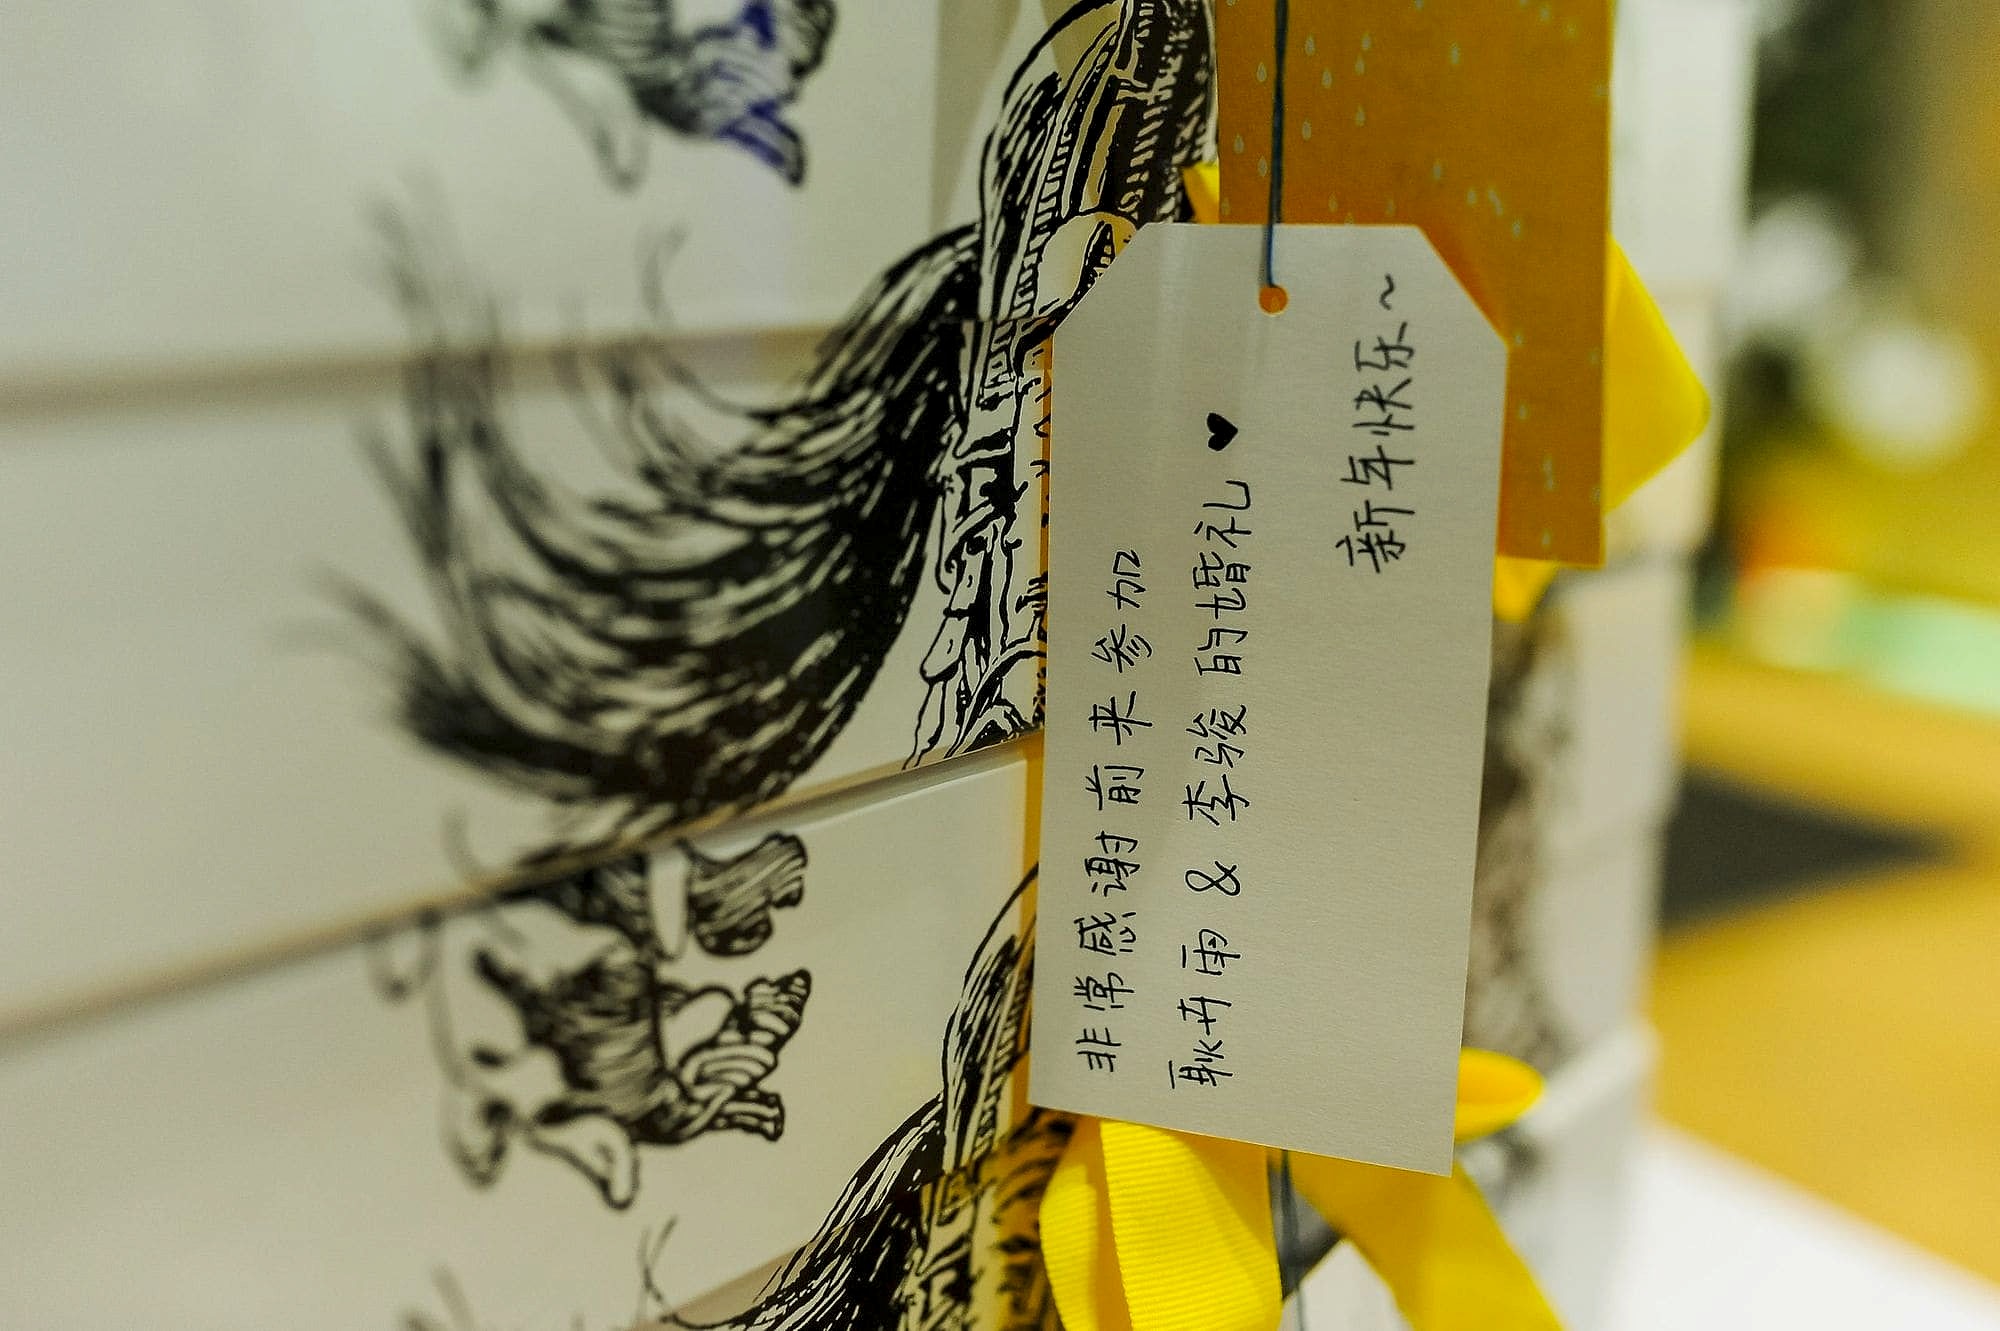 非常感谢前来参加
耿卉雨 & 李骏的婚礼♥
新年快乐~